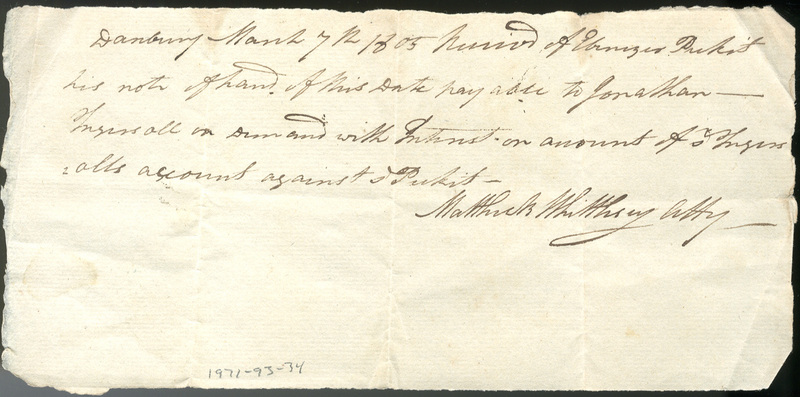 Danbury March 7th 1805 Received of Ebenezer Pickit
his note of hand of this Date payable to Jonathan —
Ingersoll on Demand with Interest on account of sd Ingers
:olls account against sd Pickit —
Matthew B Whittlesey Atty —
1971-93-34